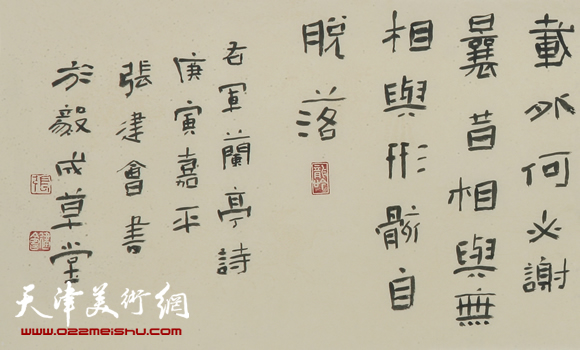 載外何必謝
曩昔相與無
相與形骸自
脫落
右軍蘭亭詩
庚寅嘉平
張建會書
於毅成草堂
天津美術網
www.022meishu.com